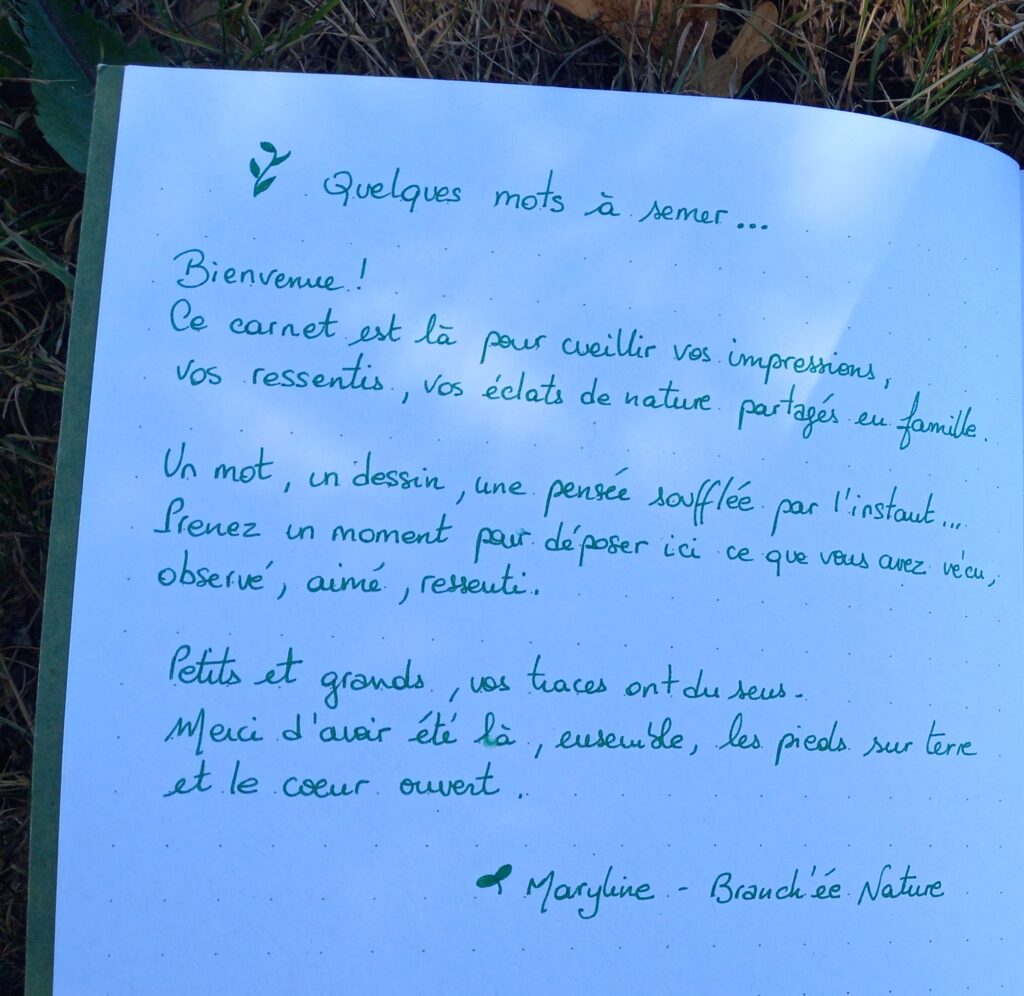 Quelques mots à semer...
Bienvenue !
Ce carnet est là pour cueillir vos impressions,
vos ressentis, vos éclats de nature partagés en famille.
Un mot, un dessin, une pensée soufflée par l'instant...
Prenez un moment pour déposer ici ce que vous avez vécu,
observé, aimé, ressenti.
Petits et grands, vos traces ont du sens.
Merci d'avoir été là, ensemble, les pieds sur terre
et le coeur ouvert.
Maryline - Branch'ée Nature